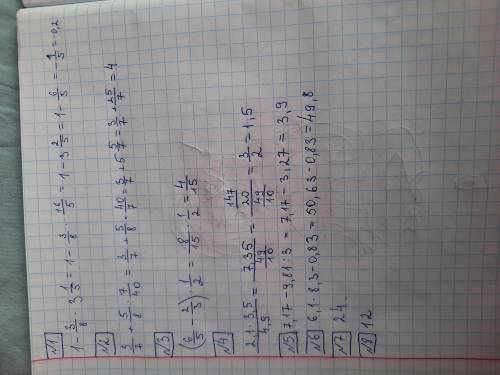 №1
1 - 3/8 · 3 1/5 = 1 - 3/8 · 16/5 = 1 - 3 2/5 = 1 - 6/5 = -1/5 = -0,2
№2
3/7 + 5/8 : 7/40 = 3/7 + 5/8 · 40/7 = 3/7 + 5 5/7 = 3/7 + 25/7 = 4
№3
(6/5 - 2/3) · 1/2 = 8/15 · 1/2 = 4/15
№4
2,1 · 3,5 / 4,9 = 7,35 / 49/10 = 147/20 / 49/10 = 3/2 = 1,5
№5 7,17 - 9,81 : 3 = 7,17 - 3,27 = 3,9
№6 6,1 · 8,3 - 0,83 = 50,63 - 0,83 = 49,8
№7 24
№8 12